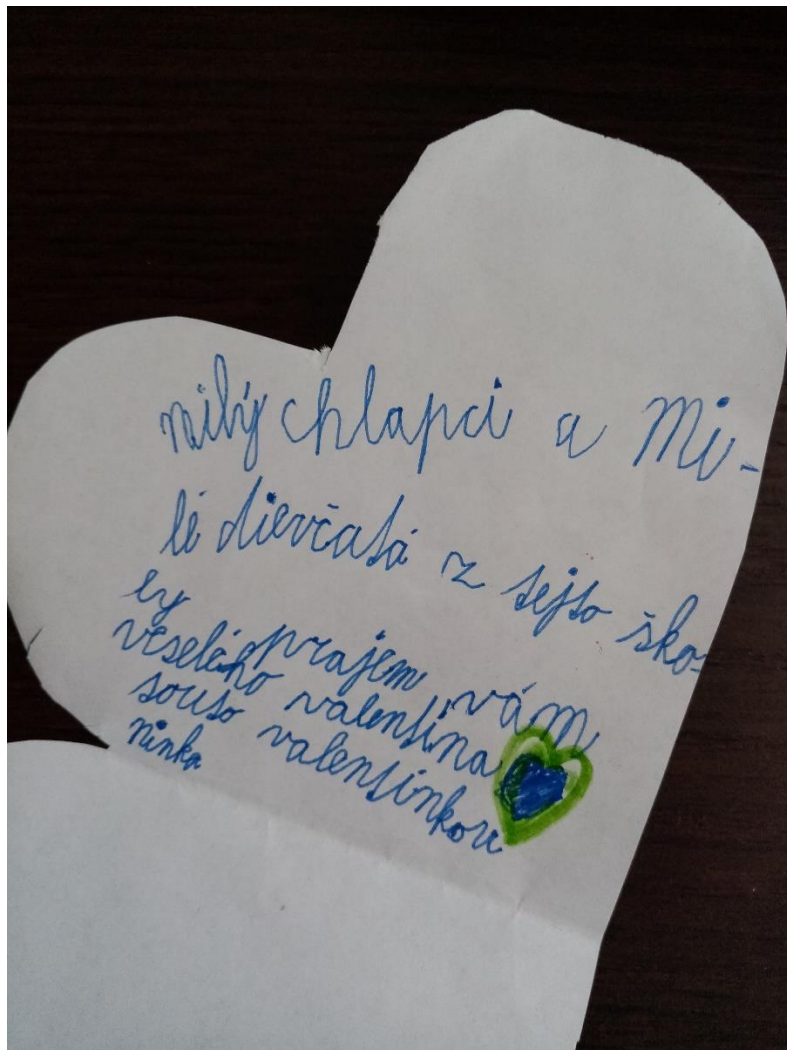 milý chlapci a Mi-
lé dievčatá z tejto ško-
ly prajem vám
veselého valentína
touto valentínkou
Ninka